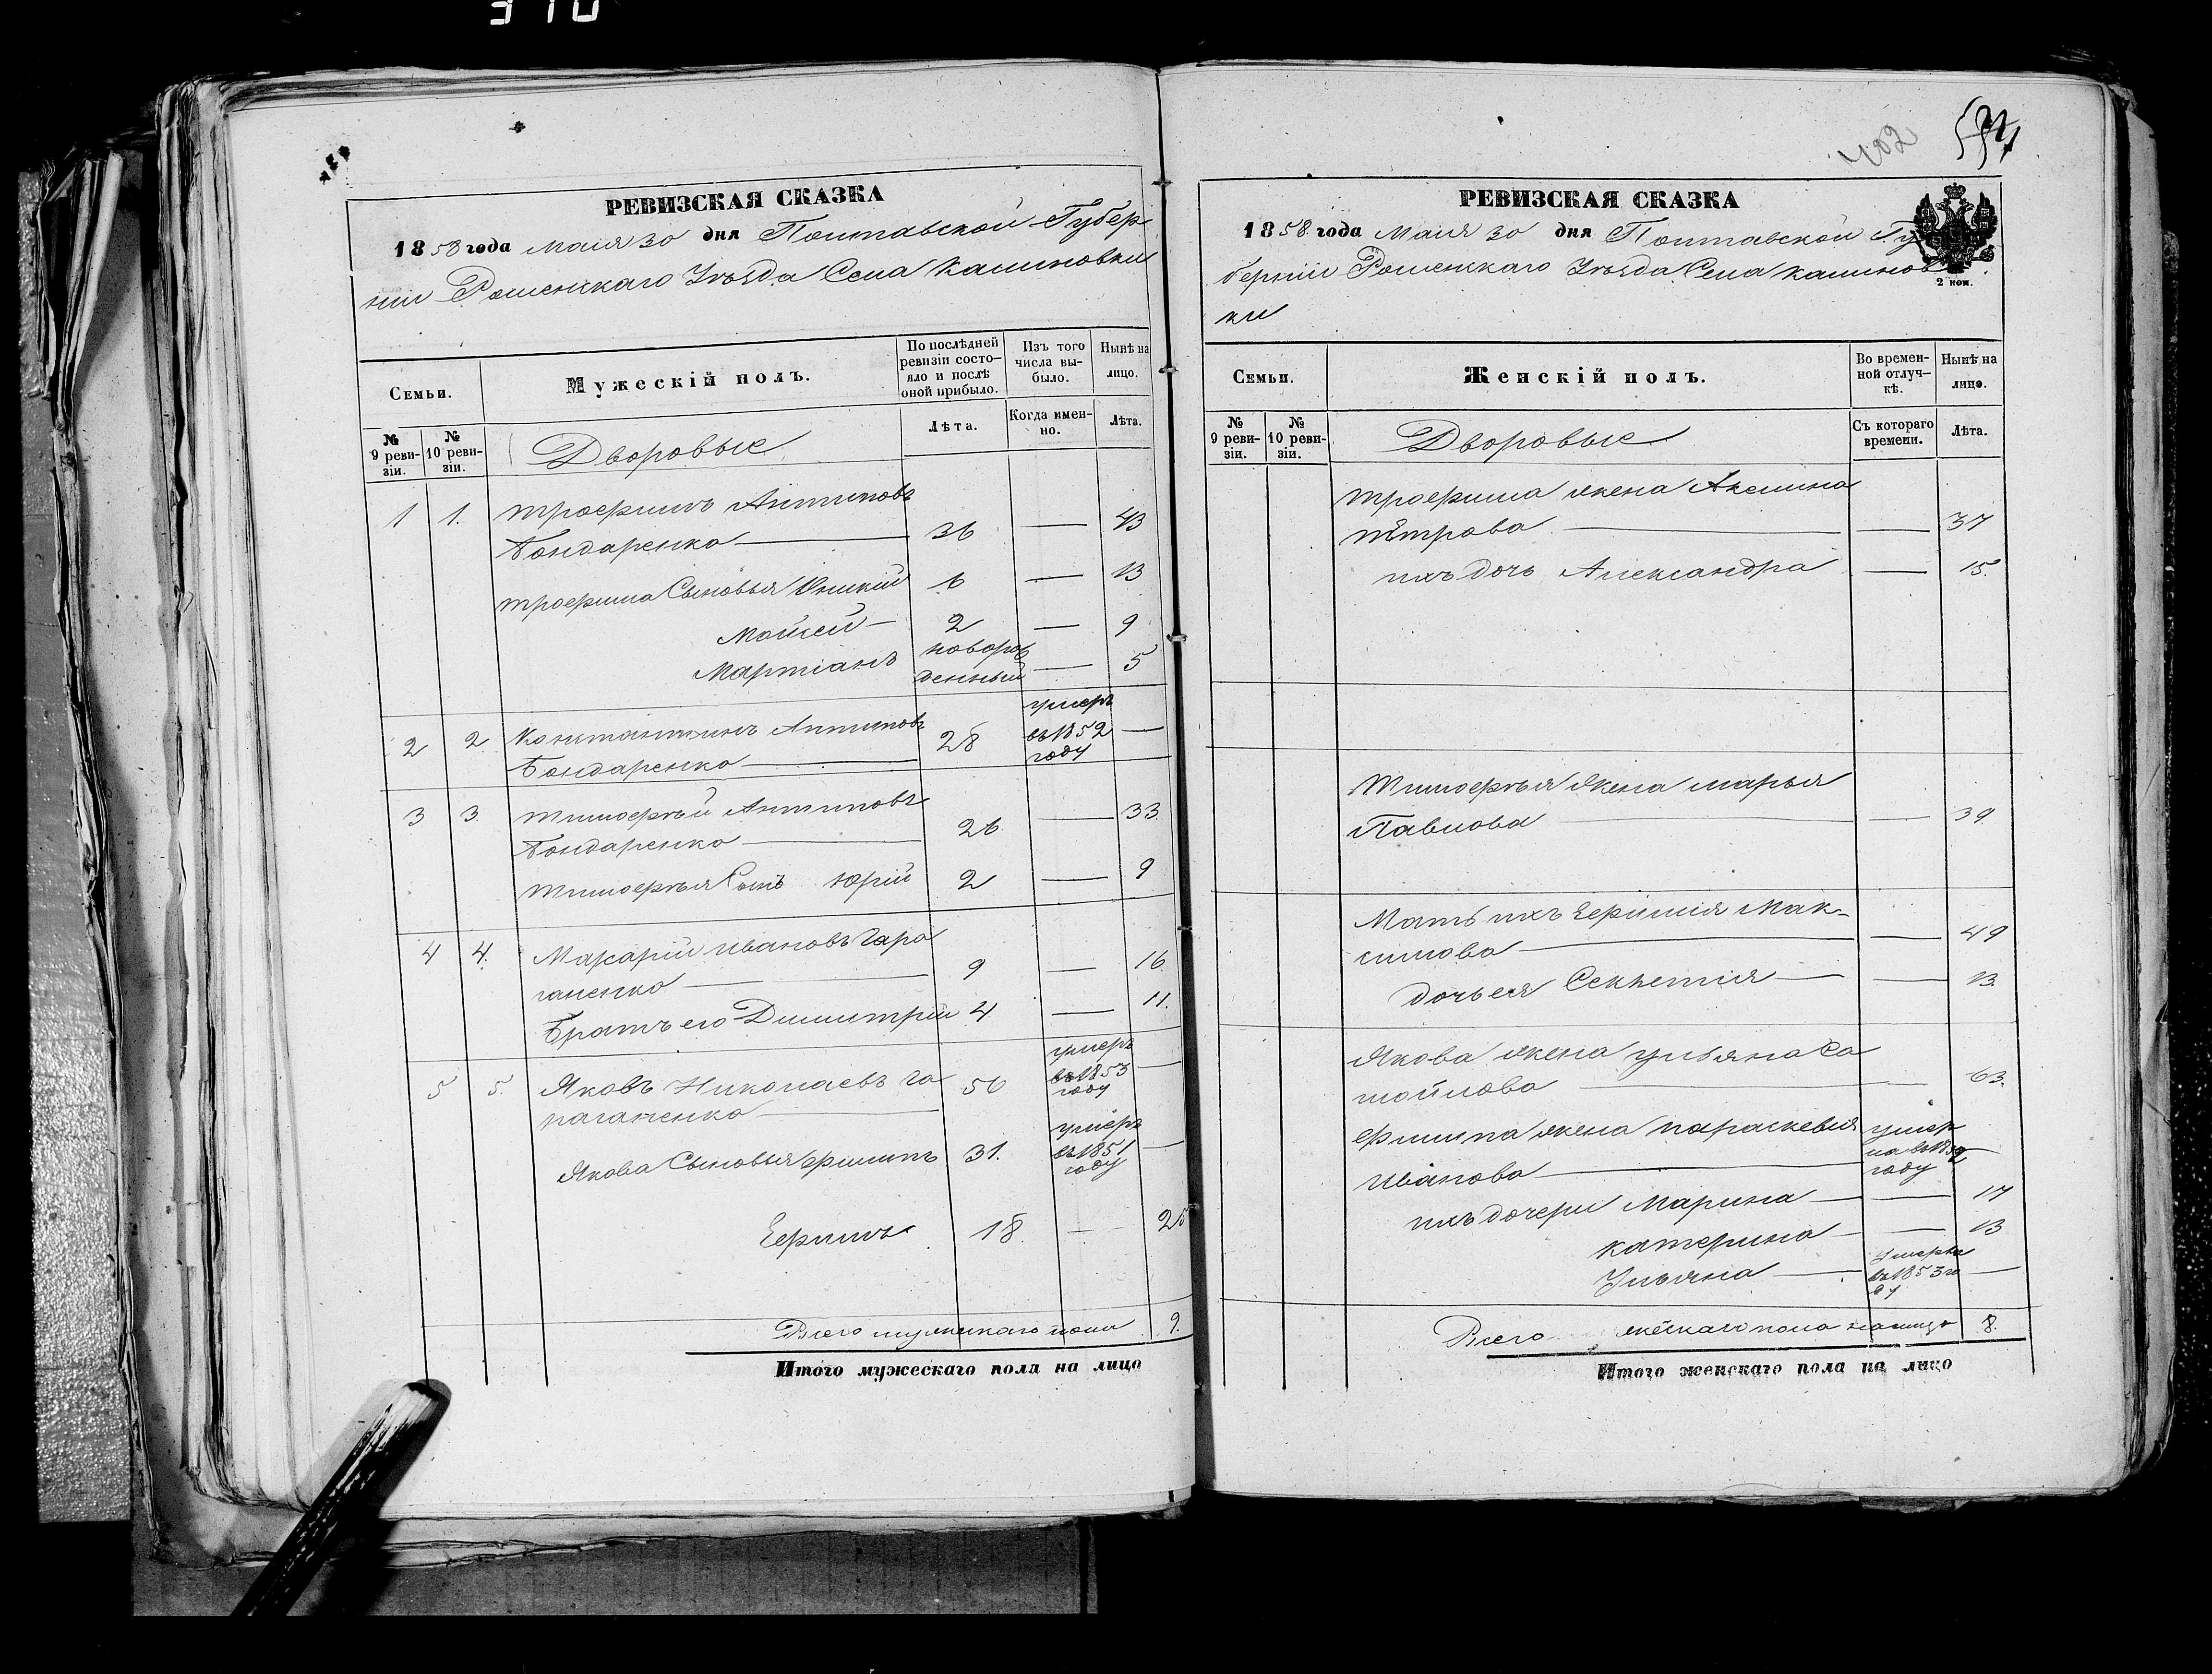 310
РЕВИЗСКАЯ СКАЗКА
1858 года маія 30 дня Полтавской Губер
ніи Роменскаго Уѣзда Села Калиновки
Семьи.
Мужескій полъ.
По послѣдней ревизіи состо-
яло и послѣ
оной прибыло.
Изъ того
числа вы-
было.
Нынѣ на
лицо.
№
9 реви-
зіи.
№
10 реви-
зіи.
Дворовые
Лѣта.
Когда имен-
но.
Лѣта.
1 1. Трофимъ Антиповъ
Бондаренко — 36 — 43
Трофима Сыновья 6 — 13
Мойсей — 2 — 9
Мартіанъ новорож
денный — 5
2 2. Константинъ Антиповъ
Бондаренко — 28 умеръ
въ 1852
году —
3 3. Тимофѣй Антиповъ
Бондаренко — 26 — 33.
Тимофѣя Сынъ Юрій 2 — 9
4 4. Макарій Ивановъ Гара
ганенко — 9 — 16.
Братъ его Димитрій 4 — 11.
5 5. Яковъ Николаевъ Га
раганенко — 56 умеръ
въ 1853
году —
Якова Сыновья Филипъ 31. умеръ
въ 1851
году —
Ефимъ 18. — 25
Всего мужескаго пола 9.
Итого мужескаго пола на лицо
402
РЕВИЗСКАЯ СКАЗКА
1858. года Маія 30 дня Полтавской Гу
берніи Роменскаго Уѣзда Села Калинов
ки
2 коп.
Семьи.
Женскій полъ.
Во времен-
ной отлуч-
кѣ.
Нынѣ на
лицо.
№
9 реви-
зіи.
№
10 реви-
зіи.
Дворовые
Съ котораго
времени.
Лѣта.
Трофима жена Акилина
Петрова — — 37
ихъ дочь Александра — 15.
Тимофѣя жена Марья
Павлова — — 39.
Мать ихъ Ефимія Мак-
симова — — 49
дочь ея — — 13.
Якова жена Ульяна Са
мойлова — — 63.
Филипа жена Параскевія
Иванова — умер
ла въ 1852
году —
ихъ дочери Марина — — 17
Катерина — — 13
Ульяна — умерла
въ 1853 го
ду —
Всего женскаго пола налицо 8.
Итого женскаго пола на лицо